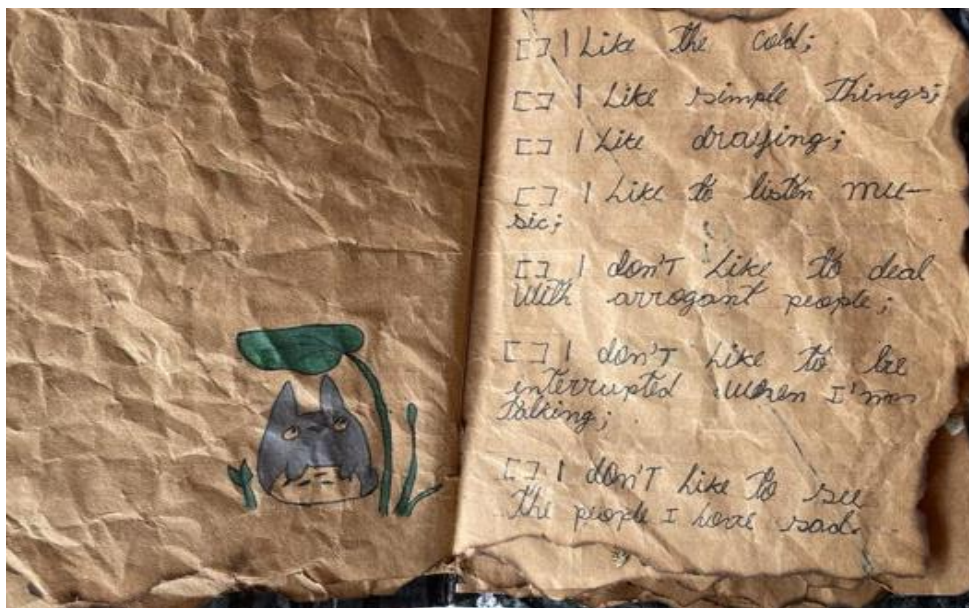 [ ] I Like the cold;
[ ] I Like simple Things;
[ ] I Like drawing;
[ ] I Like to listen mu-
sic;
[ ] I don't Like to deal
With arrogant people;
[ ] I don't Like to be
interrupted when I'm
Talking;
[ ] I don't Like To see
The people I Love sad.